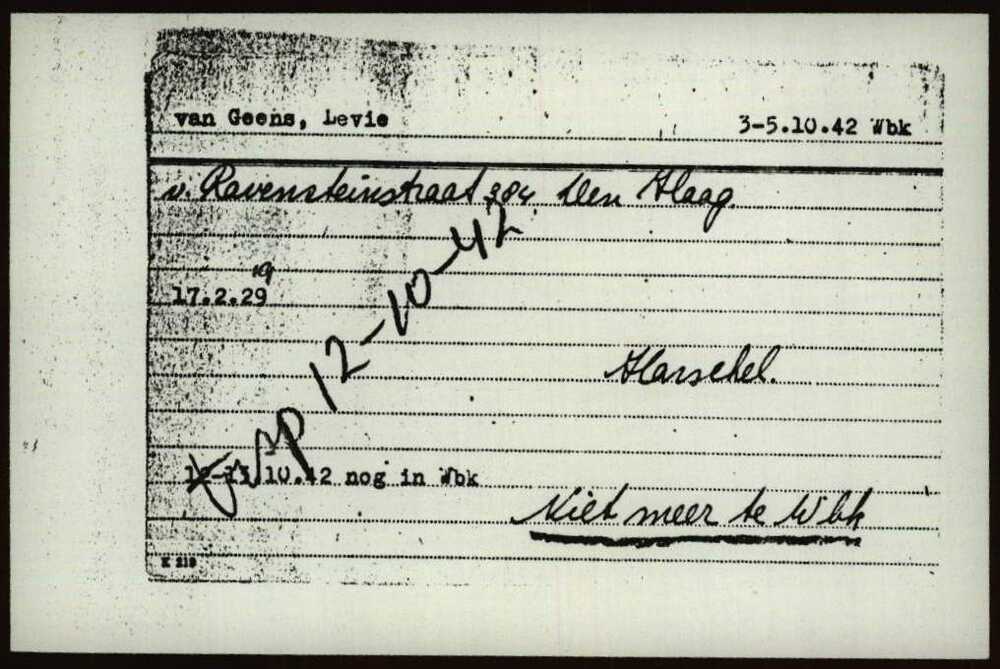 van Geens, Levie 3-5.10.42 Wbk
v. Ravensteinstraat 384 Den Haag.
19
17.2.29
Trsp 12-10-42
Harschel.
12-13.10.42 nog in Wbk
Niet meer te Wbk
K 213